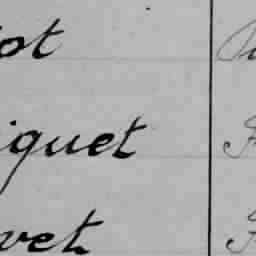 ot
iquet
vet